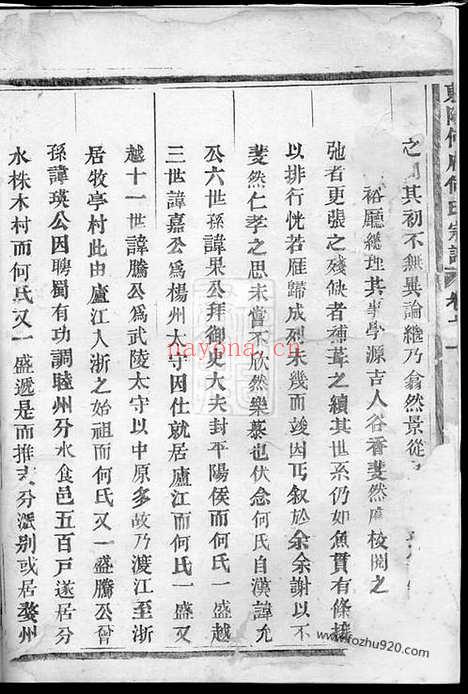 東陽何府何氏宗譜 卷之一
之間其初不無異論繼乃翕然景從
裕廳總理其事學源吉人谷香斐然應校閱之
弛者更張之殘缺者補葺之續其世系仍如魚貫有條接
以排行恍若雁歸成列未幾而竣因丐叙於余余謝以不
斐然仁孝之思未嘗不欣然樂慕也伏念何氏自漢諱允
公六世孫諱果公拜御史大夫封平陽侯而何氏一盛越
三世諱嘉公爲楊州太守因仕就居廬江而何氏一盛又
越十一世諱騰公爲武陵太守以中原多故乃渡江至浙
居牧亭村此由廬江入浙之始祖而何氏又一盛騰公曾
孫諱瑛公因聘蜀有功調睦州分水食邑五百戸遂居分
水株木村而何氏又一盛遞是而推支分派別或居婺州
nayona.cn
www.fozhu920.com